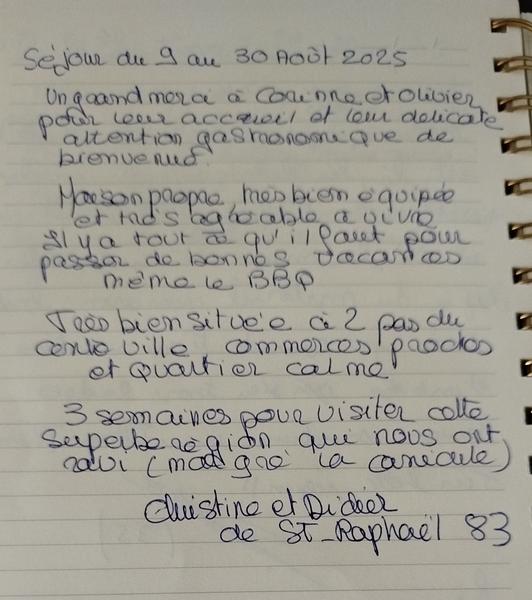 Séjour du 9 au 30 Août 2025
Un grand merci à Corinne et Olivier
pour leur accueil et leur délicate
attention gastronomique de
bienvenue.
Maison propre, très bien équipée
et très agréable à vivre
Il y a tout ce qu'il faut pour
passer de bonnes vacances
même le BBQ
Très bien située à 2 pas du
centre ville commerces proches
et quartier calme
3 semaines pour visiter cette
superbe région qui nous ont
ravi (malgré la canicule)
Christine et Didier
de ST-Raphaël 83